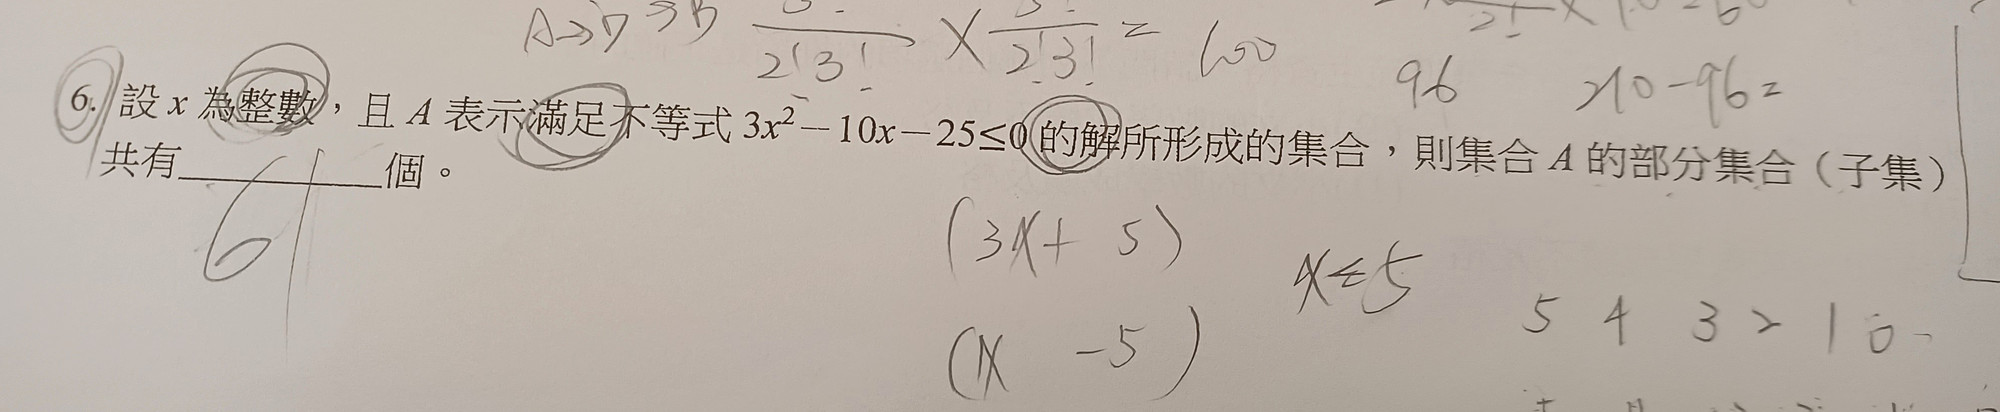 2!3! × 2!3! = 600
96 210-96=
6. 設 x 為整數，且 A 表示滿足不等式 3x²－10x－25≤0 的解所形成的集合，則集合 A 的部分集合（子集）
共有＿＿＿＿＿個。
(3x+ 5)
x≤5
(x -5)
5 4 3 2 1 0